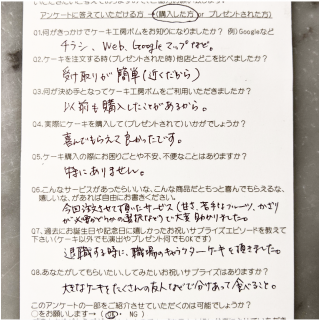 アンケートに答えていただける方→(購入した方 or プレゼントされた方)
01.何がきっかけでケーキ工房ボムをお知りになりましたか? 例)Googleなど
チラシ、Web、Googleマップなど。
02.ケーキを注文する時(プレゼントされた時)他店とどこを比べましたか?
受け取りが簡単(近くだから)
03.何が決め手となってケーキ工房ボムをご利用いただきましたか?
以前も購入したことがあるから。
04.実際にケーキを購入して(プレゼントされて)いかがでしょうか?
喜んでもらえて良かったです。
05.ケーキ購入の際にお困りごとや不安、不便なことはありますか?
特にありません。
06.こんなサービスがあったらいいな、こんな商品だともっと喜んでもらえるな、
嬉しいな、があれば自由にお書きください。
今回注文させて頂いたサービス(甘さ、苦手なフルーツ、かざり
が必要かどうかの選択など)で大変助かりました。
07.過去にお誕生日や記念日に嬉しかったお祝いサプライズエピソードを教えて
下さい(ケーキ以外でも演出やプレゼント何でもOKです)
退職する時に、職場のキャラクターケーキを頂きました。
08.あなたがしてもらいたい、してみたいお祝いサプライズはありますか?
大きなケーキをたくさんの友人などで分けあって食べること。
このアンケートの一部をご紹介させていただくのは可能でしょうか?
○をお願いします→( OK ・ NG )